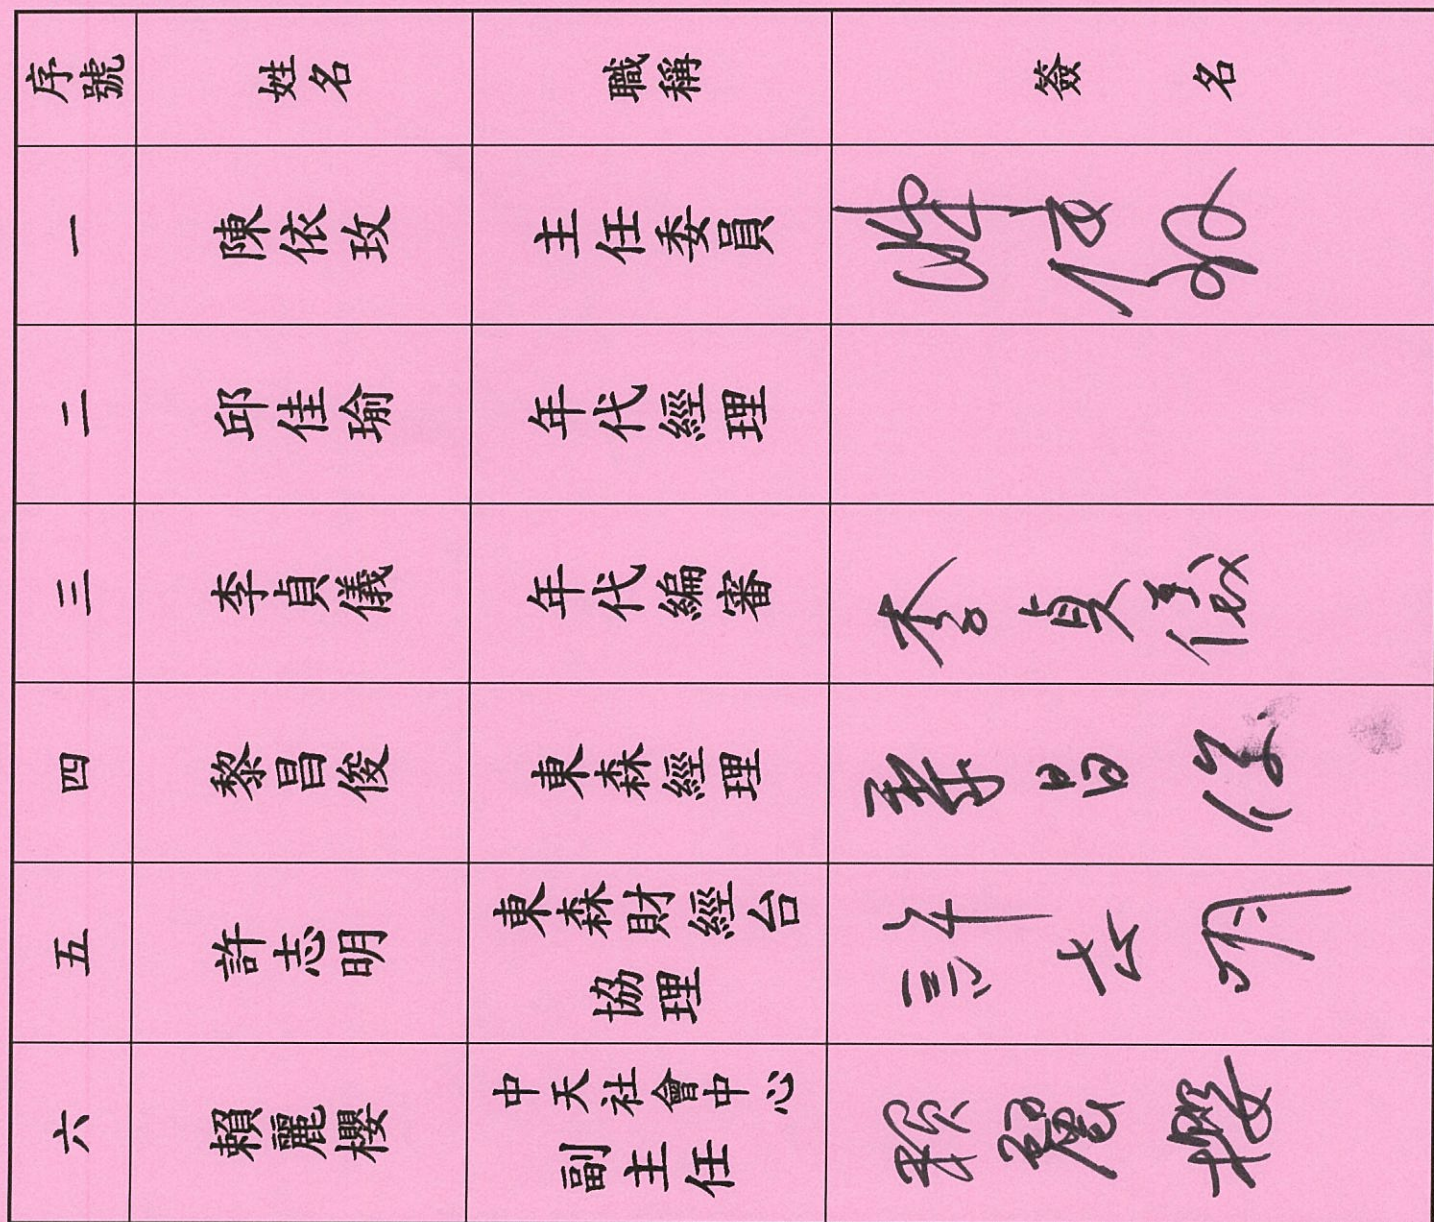 序號 姓名 職稱 簽名
一 陳依玫 主任委員 陳依玫
二 邱佳瑜 年代經理
三 李貞儀 年代編審 李貞儀
四 黎昌俊 東森經理 黎昌俊
五 許志明 東森財經台
協理 許志明
六 賴麗櫻 中天社會中心
副主任 賴麗櫻